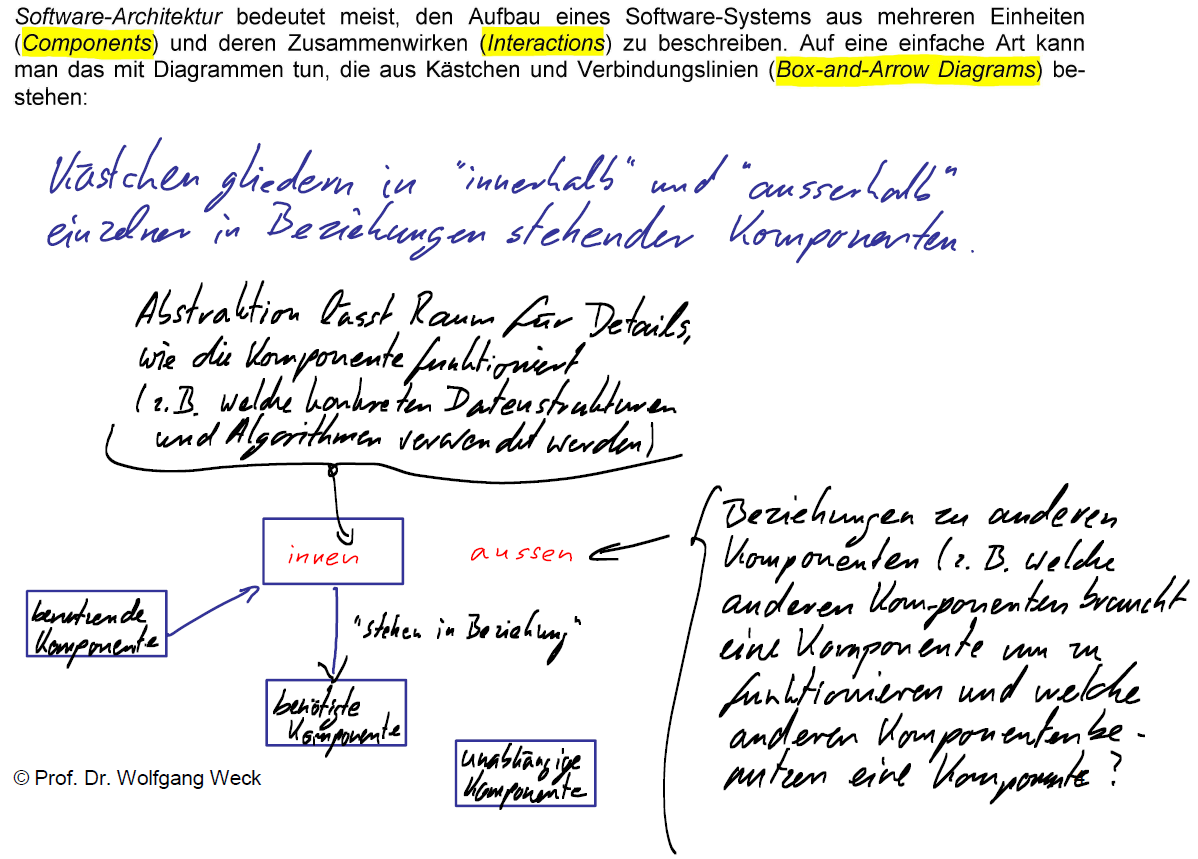 Software-Architektur bedeutet meist, den Aufbau eines Software-Systems aus mehreren Einheiten
(Components) und deren Zusammenwirken (Interactions) zu beschreiben. Auf eine einfache Art kann
man das mit Diagrammen tun, die aus Kästchen und Verbindungslinien (Box-and-Arrow Diagrams) be-
stehen:
Kästchen gliedern in "innerhalb" und "ausserhalb"
einzelner in Beziehungen stehender Komponenten.
Abstraktion lässt Raum für Details,
wie die Komponente funktioniert
(z.B. welche konkreten Datenstrukturen
und Algorithmen verwendet werden)
innen
aussen
benutzende
Komponente
"stehen in Beziehung"
benötigte
Komponente
unabhängige
Komponente
Beziehungen zu anderen
Komponenten (z.B. welche
anderen Kom-ponenten braucht
eine Komponente um zu
funktionieren und welche
anderen Komponenten be-
nutzen eine Komponente?
© Prof. Dr. Wolfgang Weck